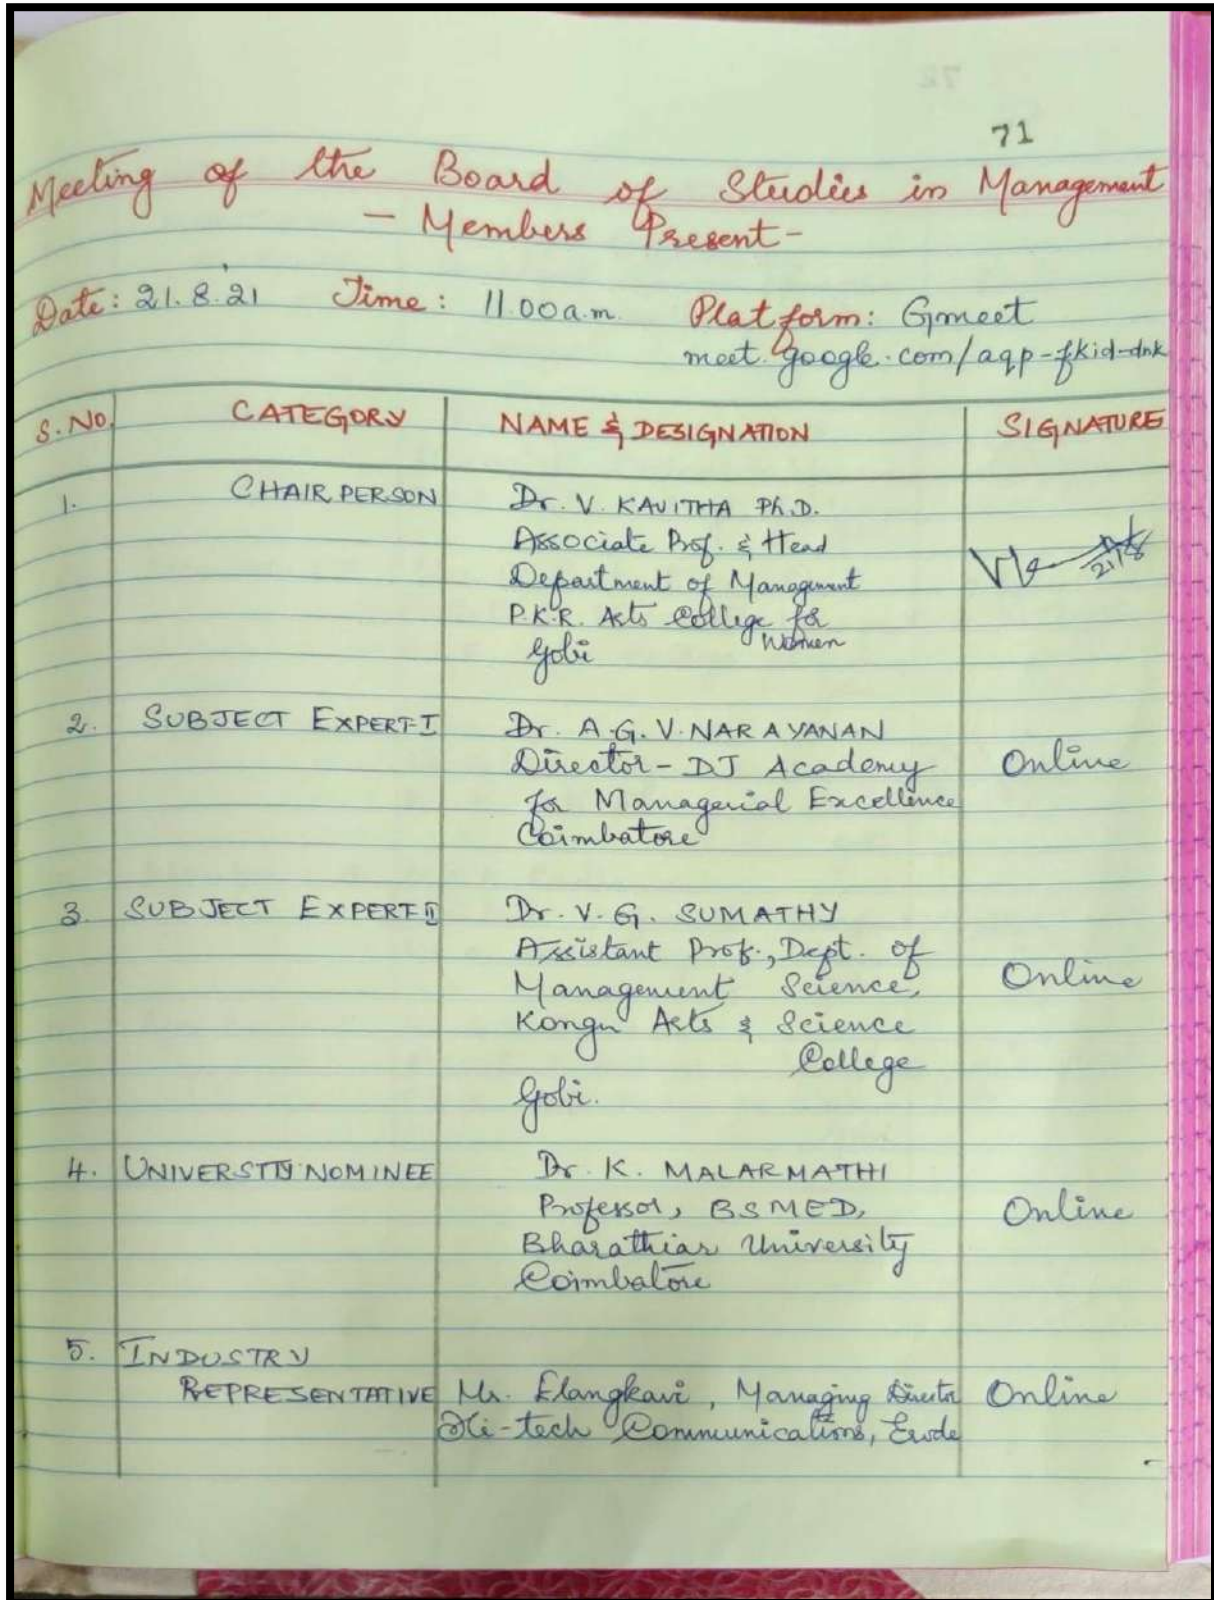 71
Meeting of the Board of Studies in Management
- Members Present -
Date: 21.8.21 Time: 11.00a.m. Platform: Gmeet
meet.google.com/aqp-fkid-dnk
S.No. CATEGORY NAME & DESIGNATION SIGNATURE
1. CHAIR PERSON Dr. V. KAVITHA Ph.D.
Associate Prof. & Head
Department of Management
21/8
P.K.R. Arts College for
Women
Gobi
2. SUBJECT EXPERT-I Dr. A.G.V. NARAYANAN
Director - DJ Academy Online
for Managerial Excellence
Coimbatore
3. SUBJECT EXPERT-II Dr. V. G. SUMATHY
Assistant Prof., Dept. of
Management Science, Online
Kongu Arts & Science
College
Gobi.
4. UNIVERSTIY NOMINEE Dr. K. MALARMATHI
Professor, BSMED, Online
Bharathiar University
Coimbatore
5. INDUSTRY
REPRESENTATIVE Mr. Elangkavi, Managing Director Online
Hi-tech Communications, Erode